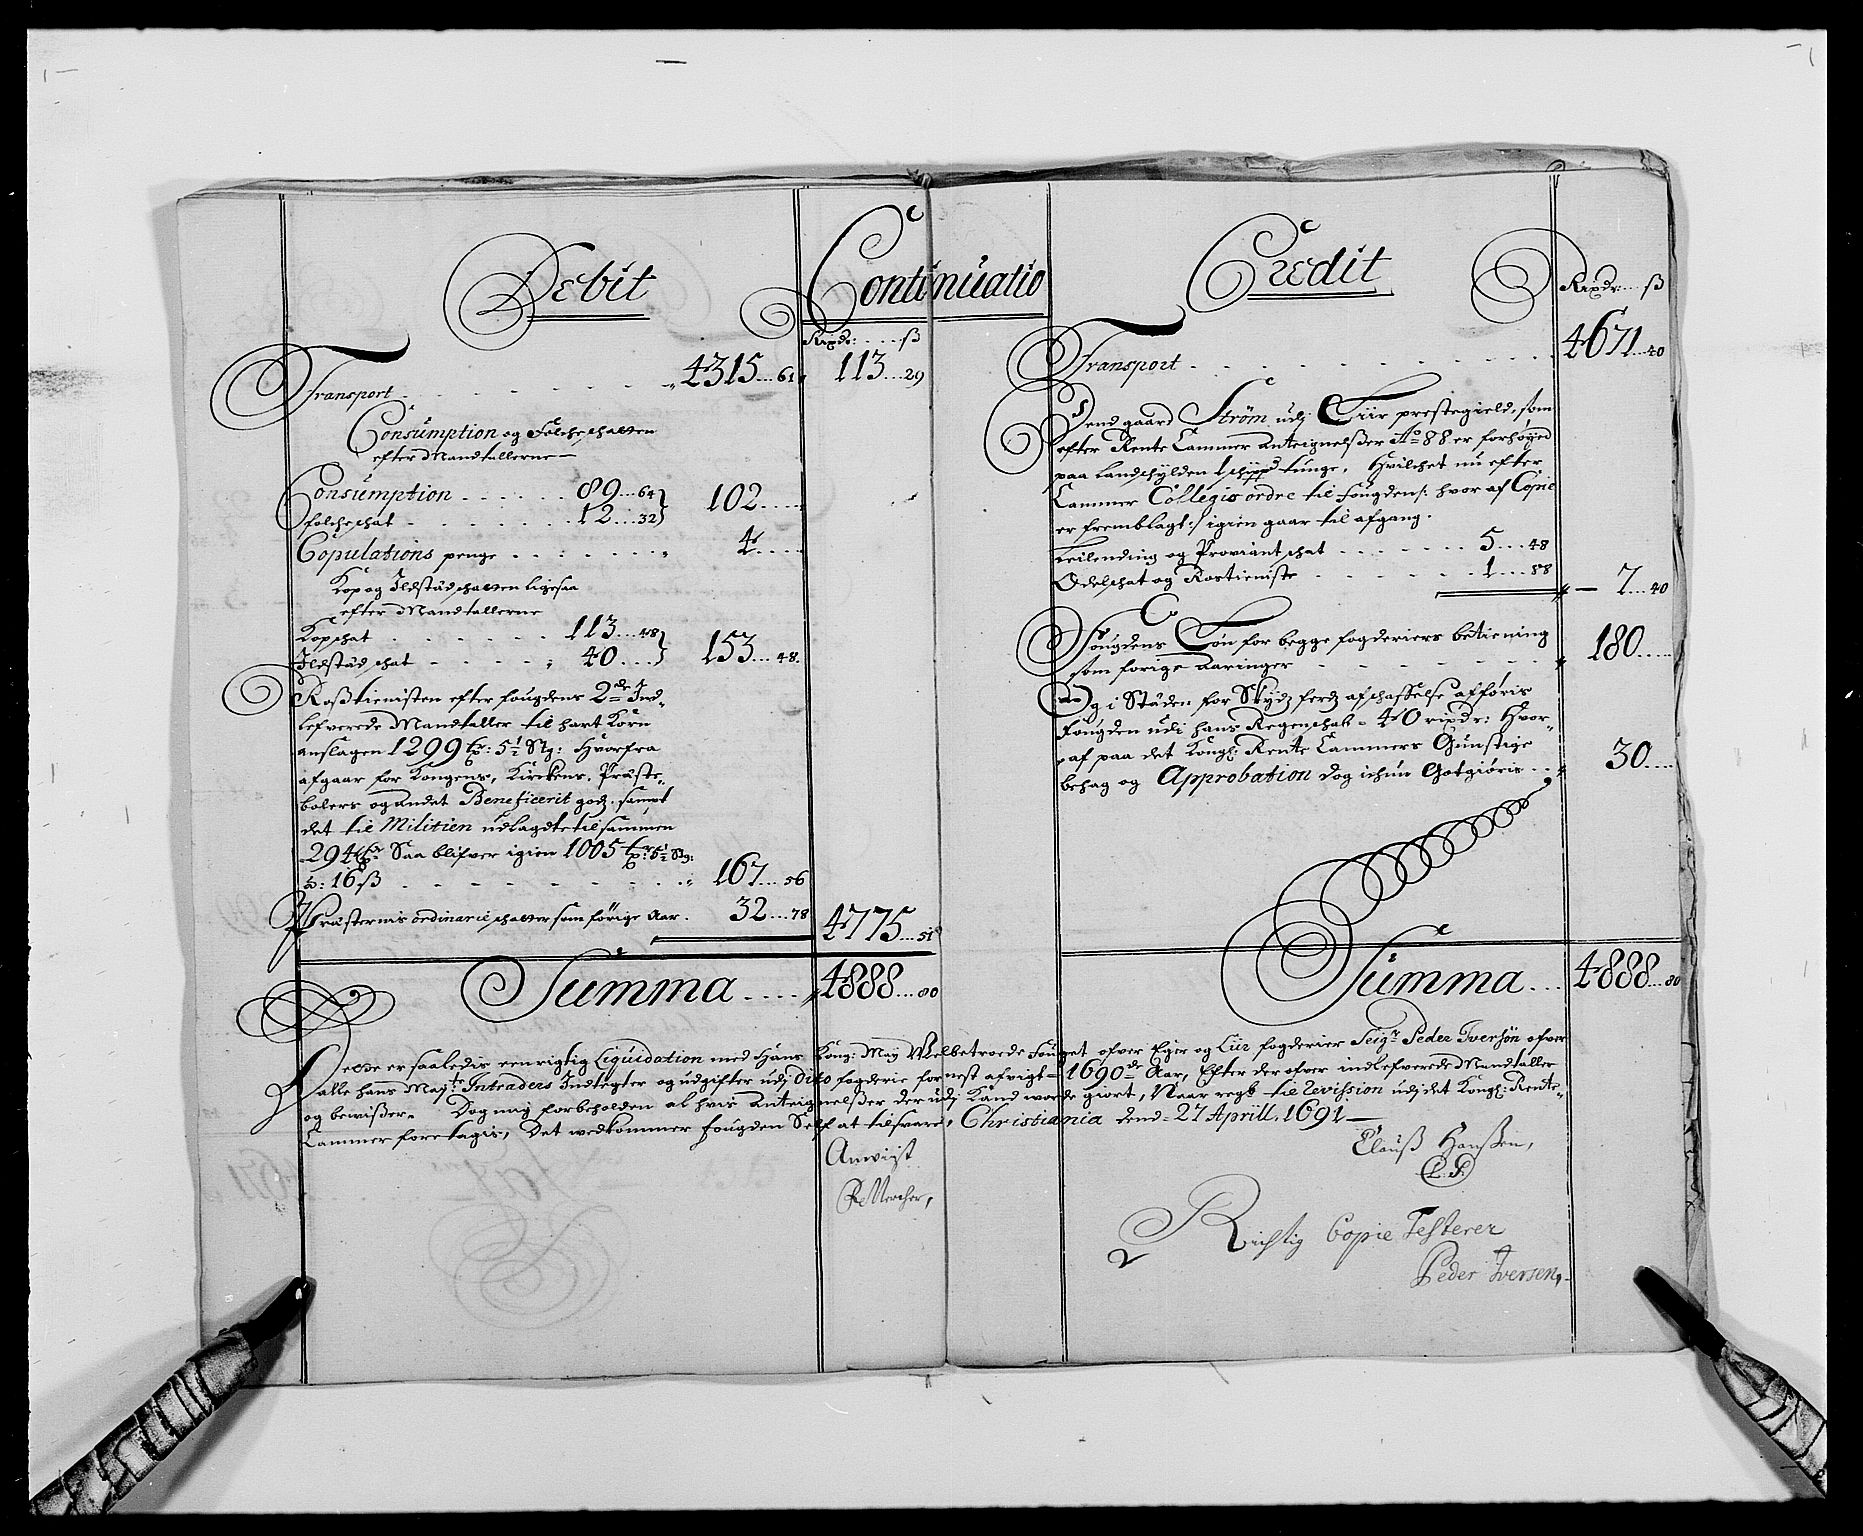 Debit
Continuatio
Rixdr: .... ß
Transport . . . . . . 4315 ... 61 113 ... 29
Consumption og Folcheschatten
efter Mandtallerne
Consumption . . . . . 89 ... 64
102 ....
folcheschat . . . . . . 12 ... 32
Copulations penge . . . . . . . 4 ....
Kop og Ildstädschatten ligesaa
efter Mandtallerne
Kopschat . . . . . . 113 ... 48
153 ... 48
Ildstädschat . . . . . 40 ....
Roßtienisten efter fougdens 2de Ind-
lefverede Mandtaller til hart Korn
anslagen 1299 : 5½ : Hvorfra
afgaar for Kongens, Kirckens, Præste-
bolers og andet Beneficerit godz, sampt
det til Militien udlagdte tilsammen
294 Saa blifver igien 1005 5½
16 ß . . . . . . . . . 167 ... 56
Præsternis ordinarie schatter som förige Aar . 32 ... 78
4775 ... 51
Summa .... 4888 ... 80
Credit
Rixdr: .... ß
Transport . . . . . . . . 4671 ... 40
Dend gaard Ström udj Liir prestegield, som
efter Rente Cammer Anteignelßer Ao 88 er forhøyed
paa Landschylden 1 schippd tunge, Hvilchet nu efter
Cammer Collegio ordre til fougden /: hvor af Copie
er fremblagt :/ igien gaar til afgang.
Leilending og Proviant schat . . . . . . 5 ... 48
Odelschat og Rostieniste . . . . . . 1 ... 88
7 ... 40
Fougdens Løn for begge fogderiers betiening
som forige Aaringer . . . . . . . 180 ....
Og i Stæden for Skydz ferdz afschaffelse afføris
fougden udi hans Regenschab - 40 rixdr: Hvor-
af paa det Kongl: Rente Cammers Gunstige
behag og Approbation dog ichun Gotgiöris . . . 30 ....
Summa ... 4888 ... 80
Dette er saaledis een rigtig Liquidation med Hans Kong: May Welbetroede Fouget ofver Eger og Liir fogderier Seigr Peder Iversøn ofver
alle hans Mayts Intraders Indtegter og udgifter udj dito fogderie for nest afvigt - 1690de Aar, Efter der ofver indlefverede Mandtaller
og bewißer. Dog mig forbeholden al hvis Anteignelßer der udj Kand worde giort, Naar regb til Revission udj det Kongl: Rente-
Cammer foretagis, Det wedkommer fougden Self at tilsvare, Christiania dend - 27 Aprill. 1691
Clauß Hanßen,
L. S.
Anwiist
Richtig Copie Testerer
Peder Iversen,